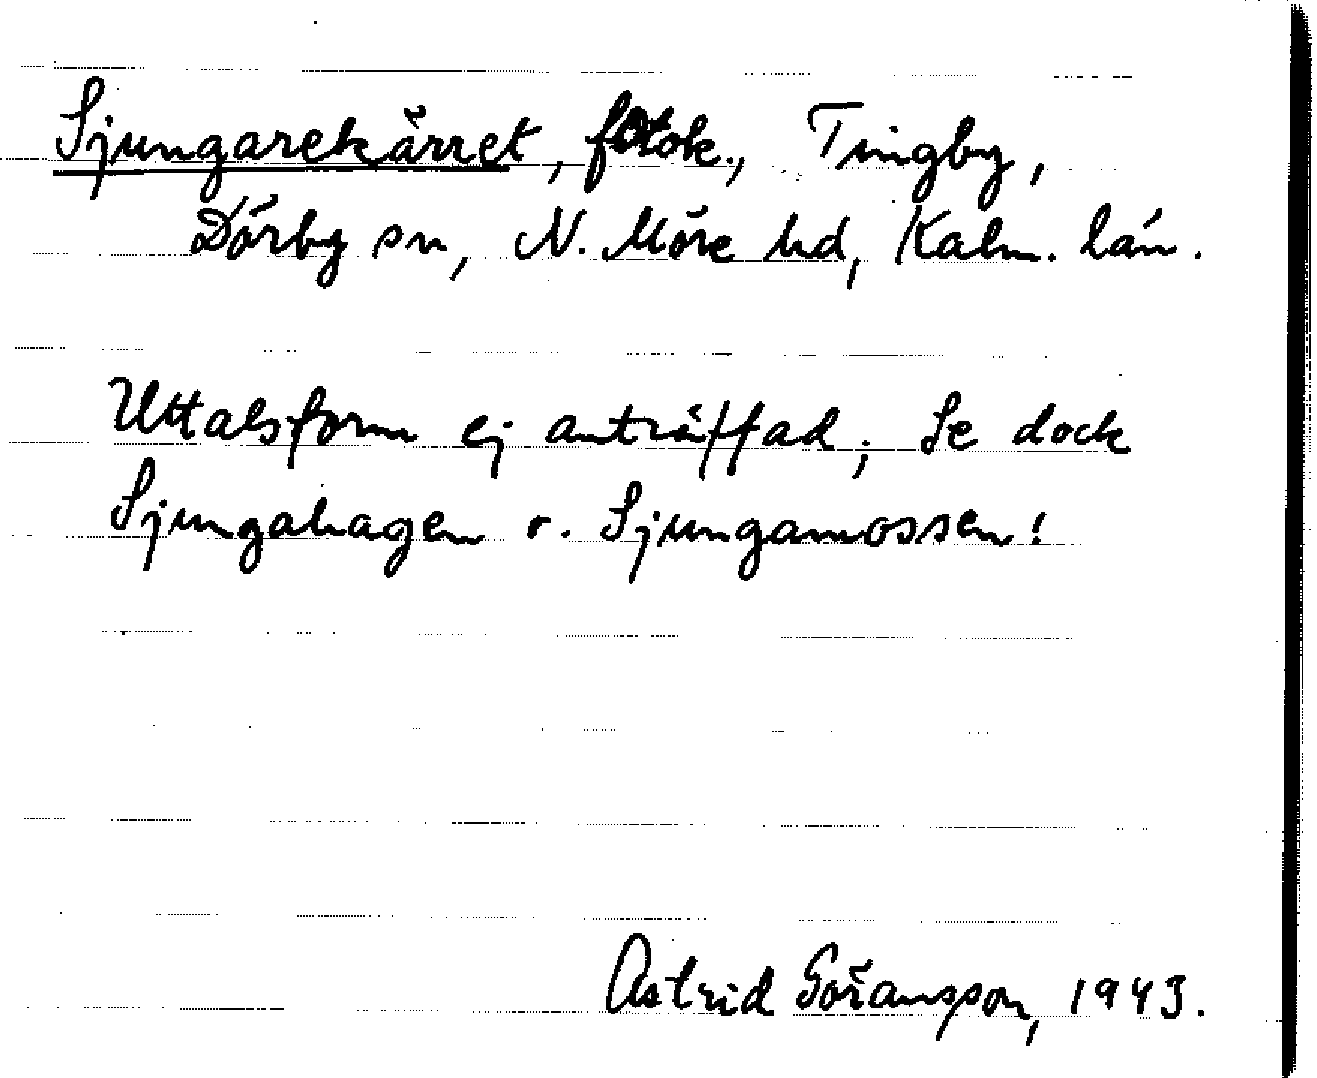 Sjungarekärret, fotok., Tingby,
Dörby sn, N. Möre hd, Kalm. län.
Uttalsform ej anträffad; Se dock
Sjungahagen o. Sjungamossen!
Astrid Göransson, 1943.